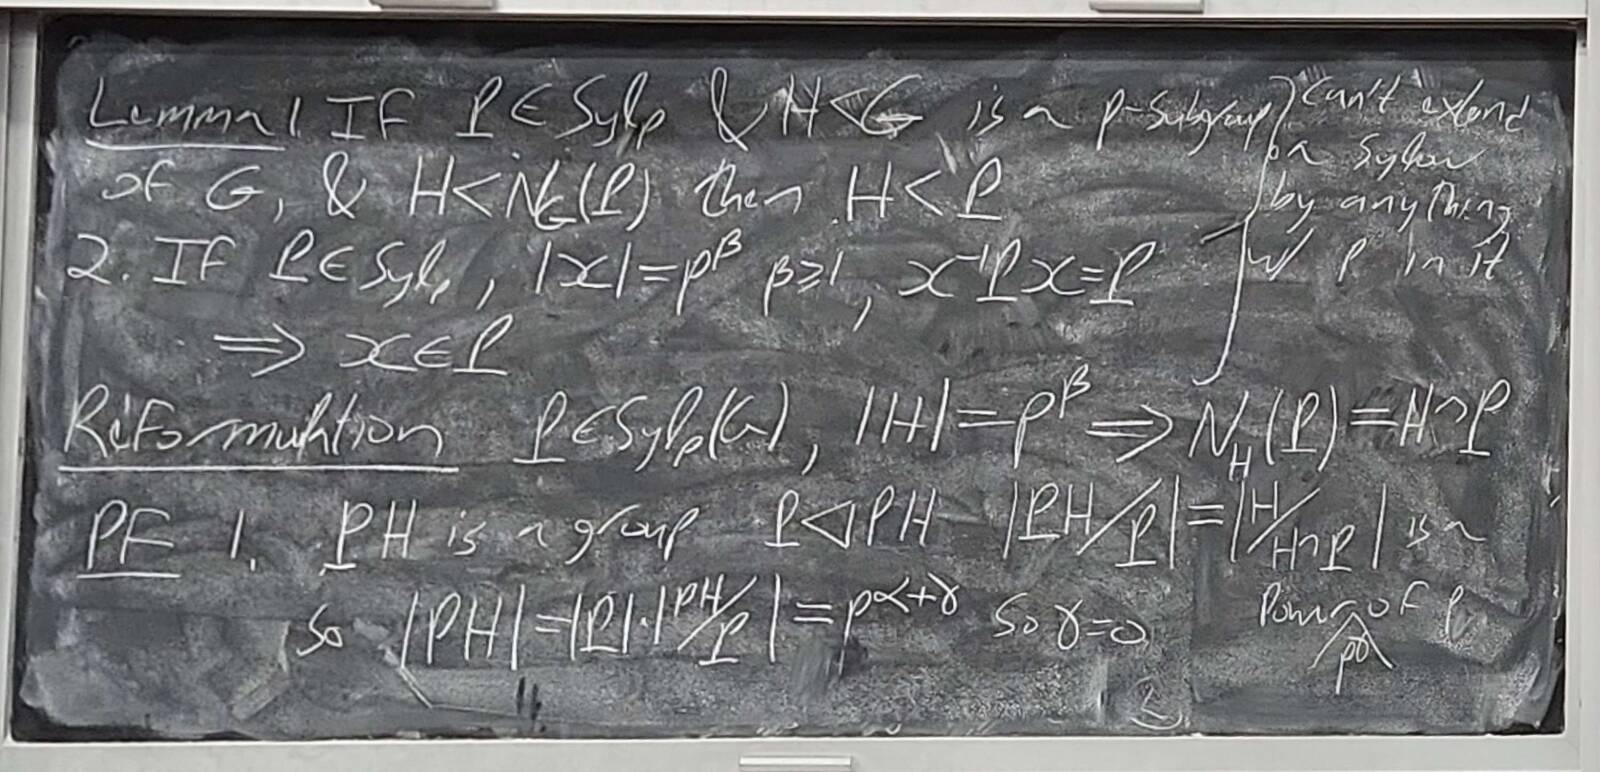 Lemma 1. If P ∈ Sylp & H < G is a p-subgroup
of G, & H < N_G(P) then H < P
2. If P ∈ Sylp, |x| = p^β β ≥ 1, x^-1 P x = P
⇒ x ∈ P
can't extend
a Sylow
by anything
w/ p in it
Reformulation P ∈ Sylp(G), |H| = p^β ⇒ N_H(P) = H ∩ P
PF 1. PH is a group P ◁ PH |PH/P| = |H/H∩P| is a
power of p
p^γ
so |PH| = |P|·|PH/P| = p^α+γ so γ = 0